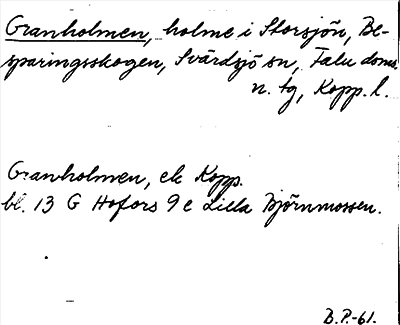 Granholmen, holme i Storsjön, Be-
sparingsskogen, Svärdsjö sn, Falu doms.
n. tg, Kopp. l.
Granholmen, ek Kopp.
bl. 13 G Hofors 9 e Lilla Björnmossen.
B.P.-61.